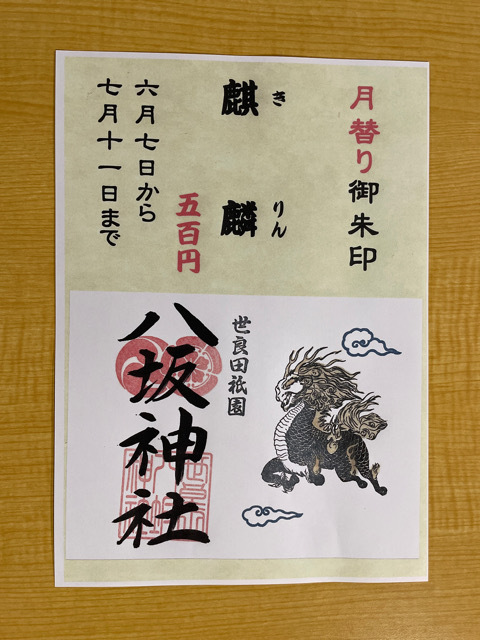 月替り御朱印
きりん
麒麟
五百円
六月七日から
七月十一日まで
世良田祇園
八坂神社